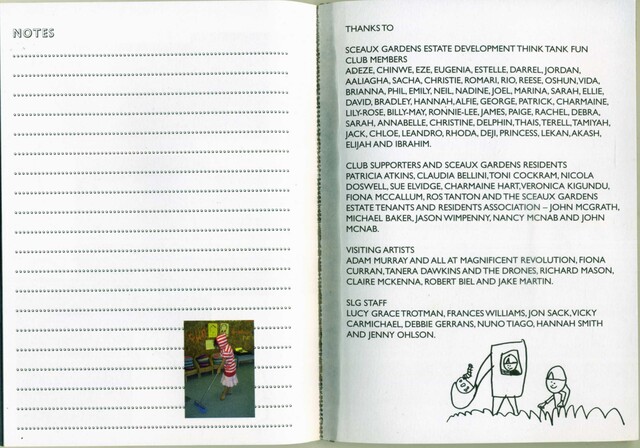 NOTES
THANKS TO
SCEAUX GARDENS ESTATE DEVELOPMENT THINK TANK FUN
CLUB MEMBERS
ADEZE, CHINWE, EZE, EUGENIA, ESTELLE, DARREL, JORDAN,
AALIAGHA, SACHA, CHRISTIE, ROMARI, RIO, REESE, OSHUN, VIDA,
BRIANNA, PHIL, EMILY, NEIL, NADINE, JOEL, MARINA, SARAH, ELLIE,
DAVID, BRADLEY, HANNAH, ALFIE, GEORGE, PATRICK, CHARMAINE,
LILY-ROSE, BILLY-MAY, RONNIE-LEE, JAMES, PAIGE, RACHEL, DEBRA,
SARAH, ANNABELLE, CHRISTINE, DELPHIN, THAIS, TERELL, TAMIYAH,
JACK, CHLOE, LEANDRO, RHODA, DEJI, PRINCESS, LEKAN, AKASH,
ELIJAH AND IBRAHIM.
CLUB SUPPORTERS AND SCEAUX GARDENS RESIDENTS
PATRICIA ATKINS, CLAUDIA BELLINI, TONI COCKRAM, NICOLA
DOSWELL, SUE ELVIDGE, CHARMAINE HART, VERONICA KIGUNDU,
FIONA MCCALLUM, ROS TANTON AND THE SCEAUX GARDENS
ESTATE TENANTS AND RESIDENTS ASSOCIATION – JOHN MCGRATH,
MICHAEL BAKER, JASON WIMPENNY, NANCY MCNAB AND JOHN
MCNAB.
VISITING ARTISTS
ADAM MURRAY AND ALL AT MAGNIFICENT REVOLUTION, FIONA
CURRAN, TANERA DAWKINS AND THE DRONES, RICHARD MASON,
CLAIRE MCKENNA, ROBERT BIEL AND JAKE MARTIN.
SLG STAFF
LUCY GRACE TROTMAN, FRANCES WILLIAMS, JON SACK, VICKY
CARMICHAEL, DEBBIE GERRANS, NUNO TIAGO, HANNAH SMITH
AND JENNY OHLSON.